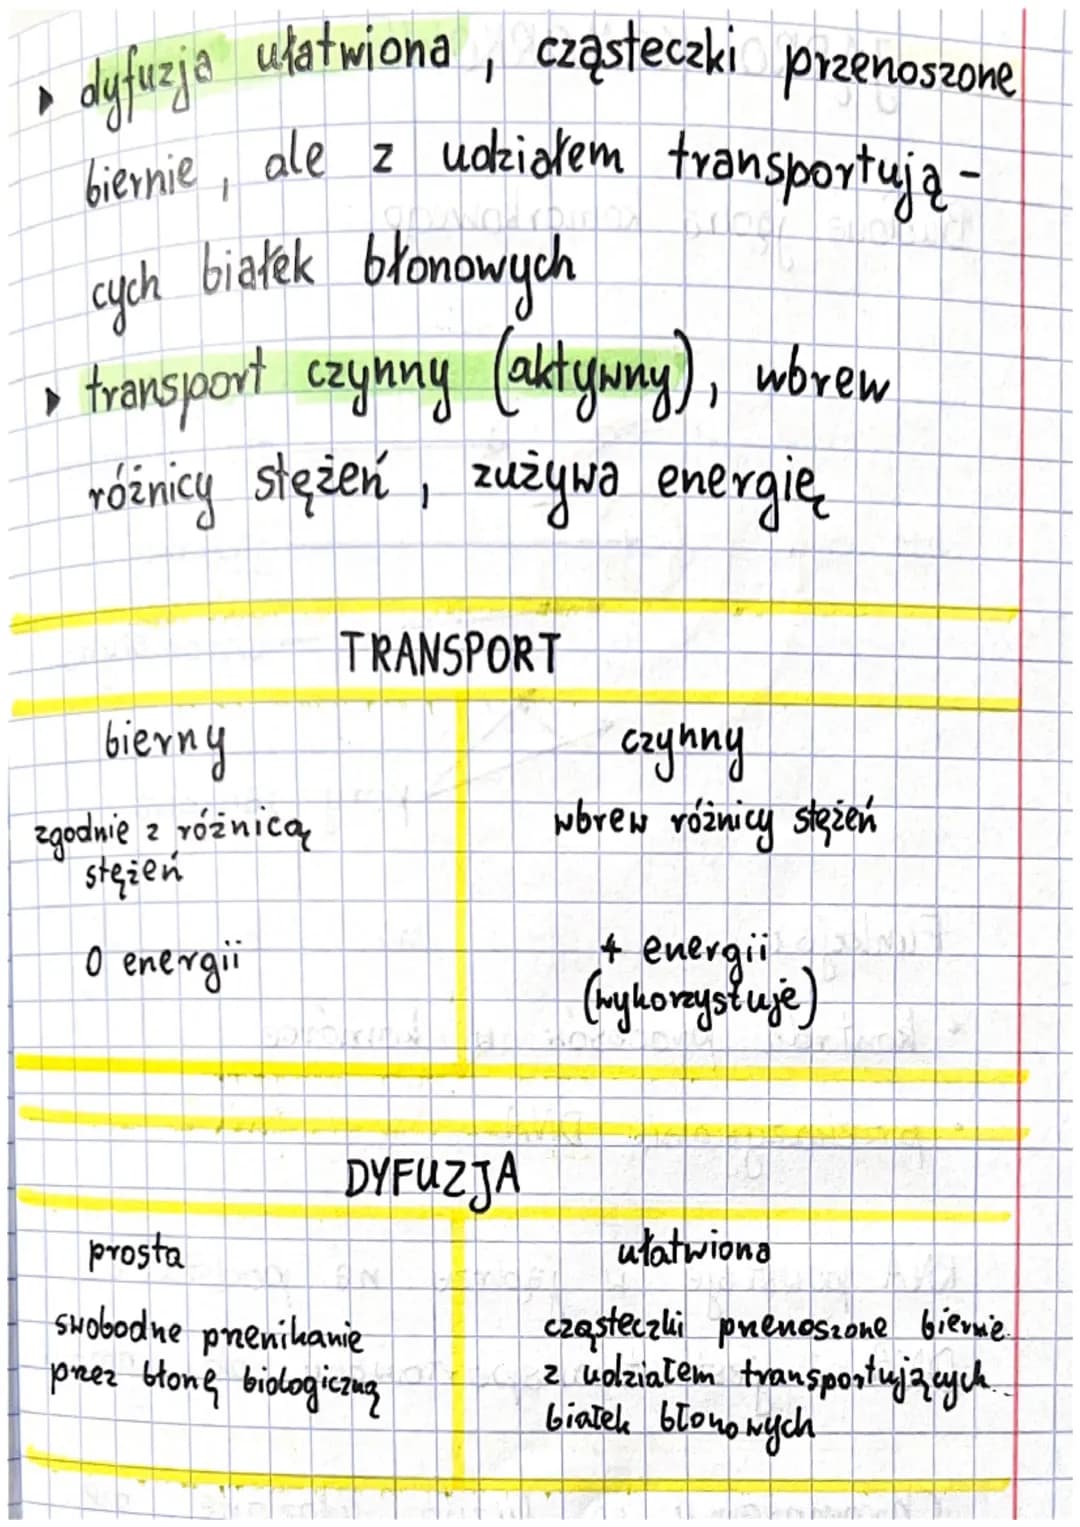 ▸ dyfuzja ułatwiona, cząsteczki przenoszone
biernie, ale z udziałem transportują-
cych białek błonowych
▸ transport czynny (aktywny), wbrew
różnicy stężeń, zużywa energię
TRANSPORT
bierny
czynny
zgodnie z różnicą
stężeń
wbrew różnicy stężeń
0 energii
+ energii
(wykorzystuje)
DYFUZJA
prosta
ułatwiona
swobodne przenikanie
przez błonę biologiczną
cząsteczki przenoszone biernie
z udziałem transportujących
białek błonowych